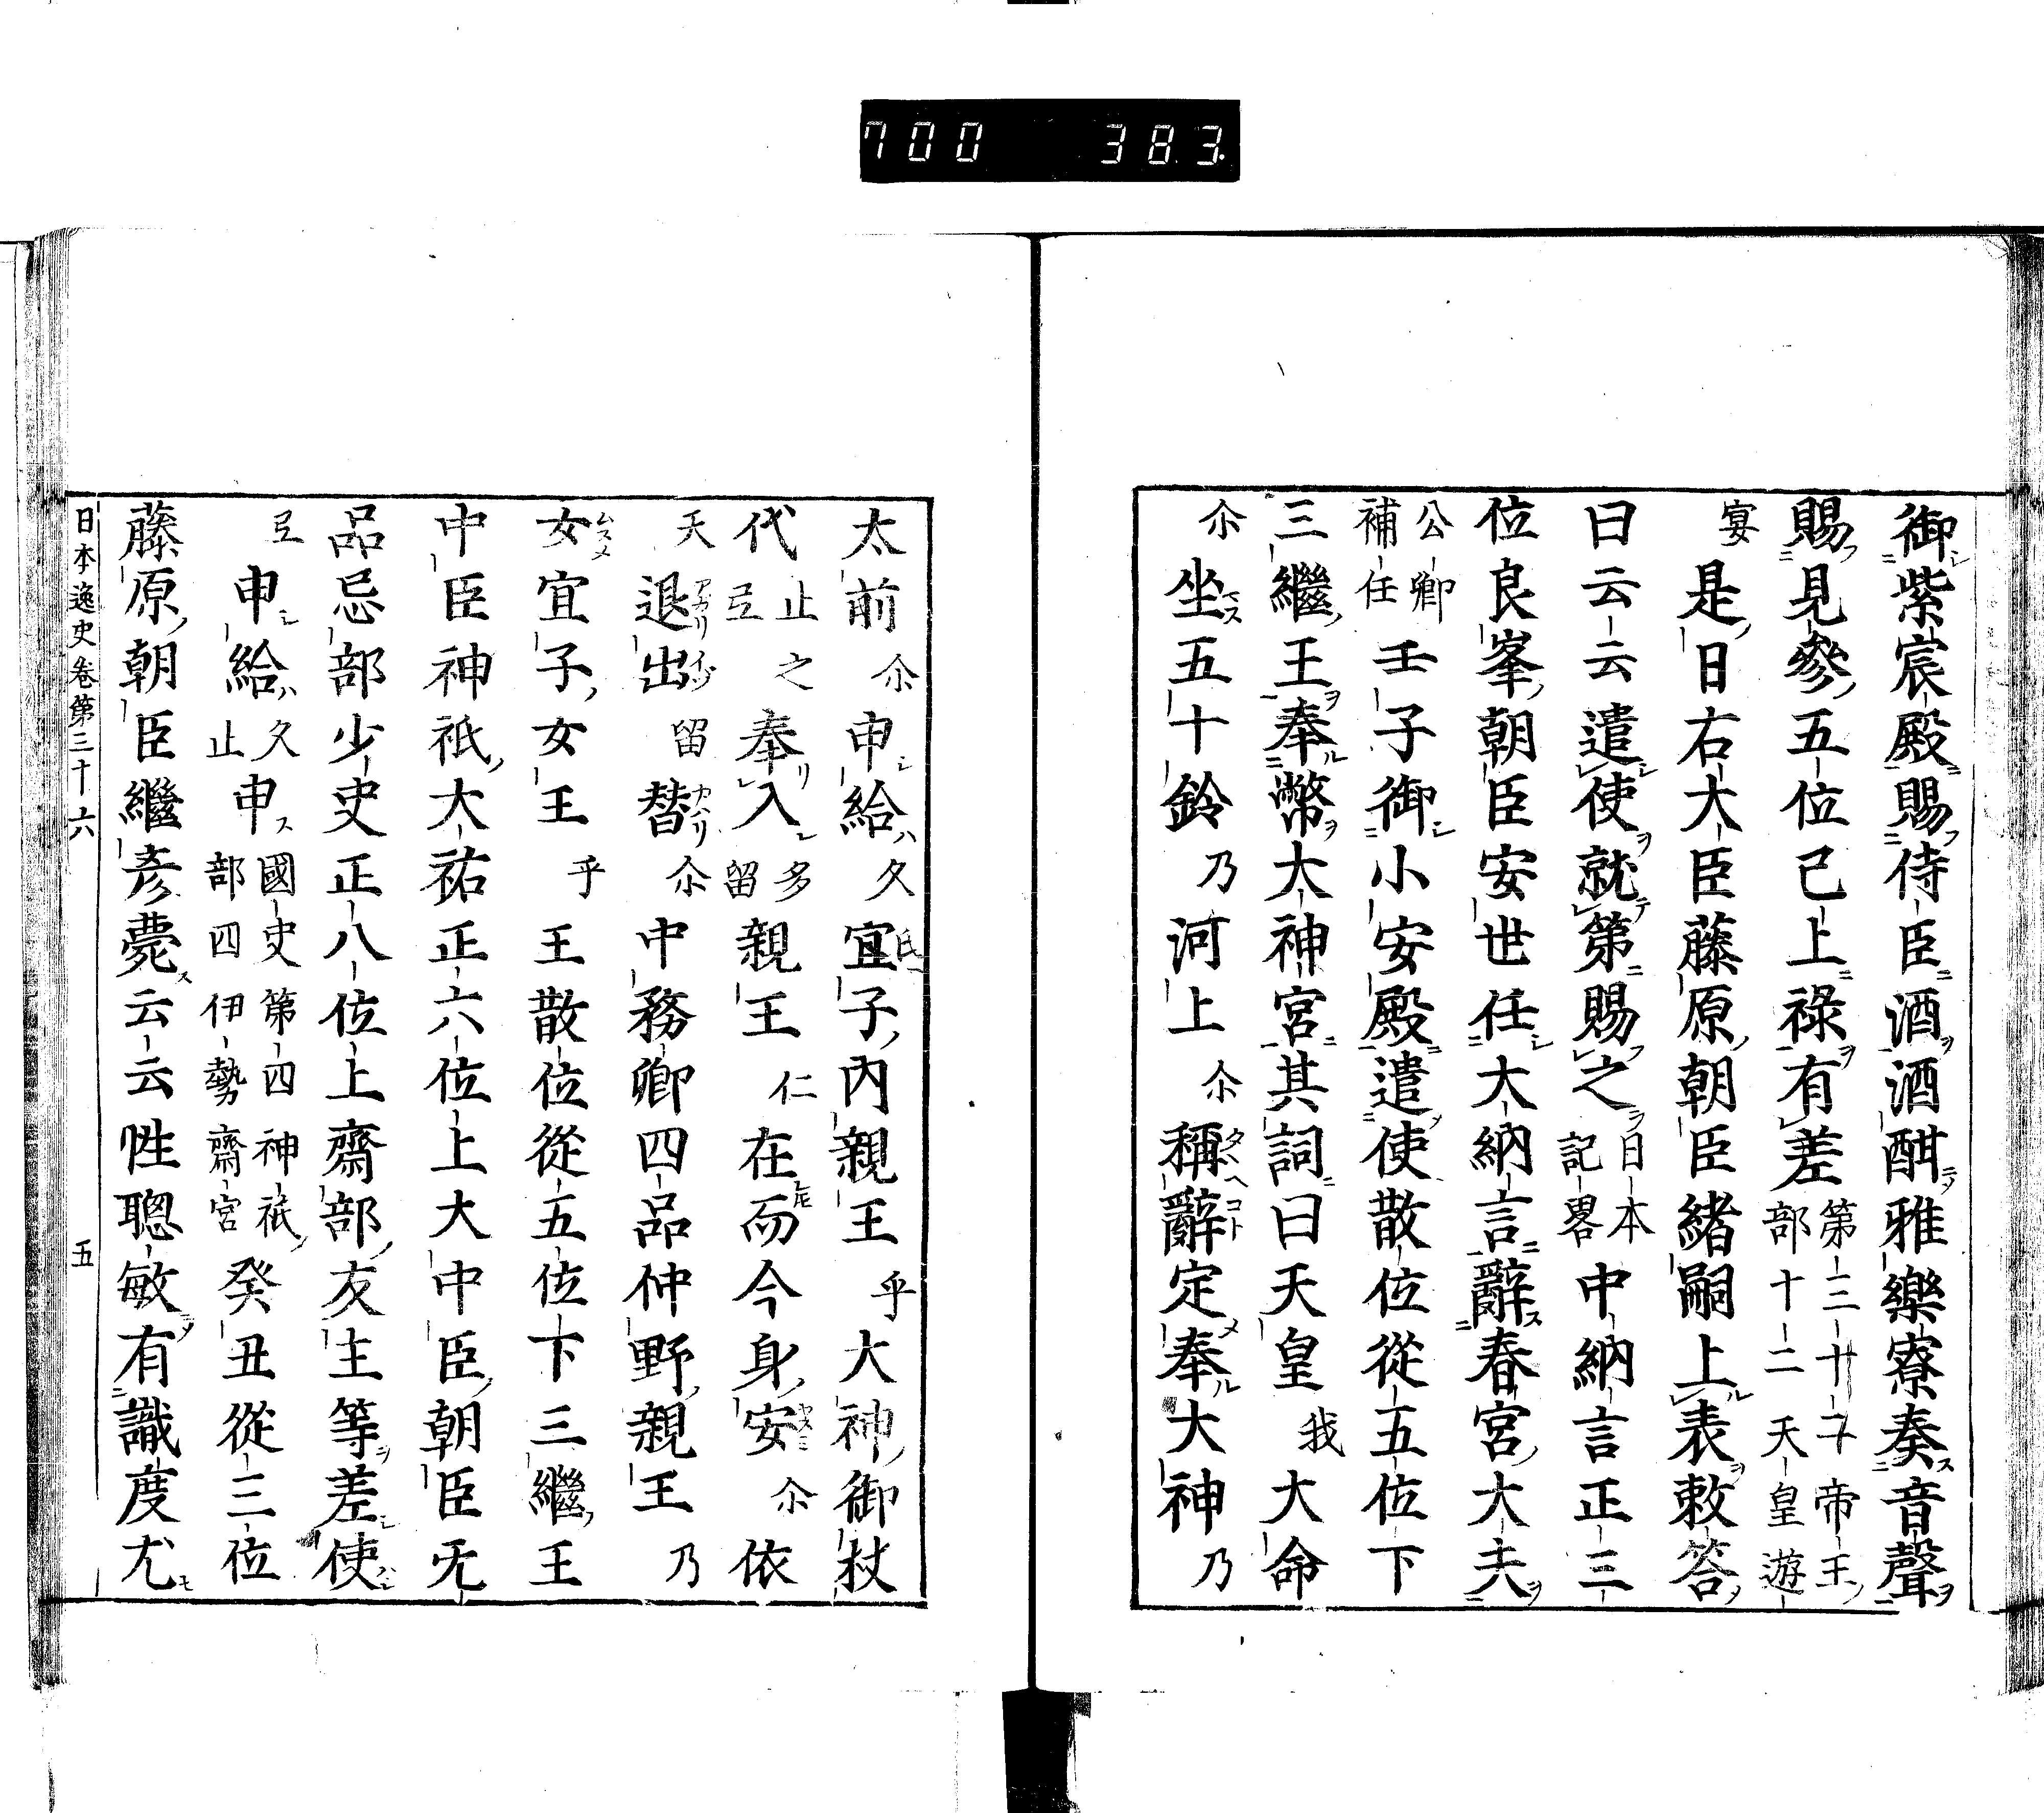 700 383.
御紫宸殿賜侍臣酒酒酣雅樂寮奏音聲
賜見參五位已上祿有差第三十二帝王部十二天皇遊
宴是日右大臣藤原朝臣緒嗣上表敕答
曰云云遣使就第賜之日本記畧中納言正三
位良峯朝臣安世任大納言辭春宮大夫
公卿補任壬子御小安殿遣使散位從五位下
三繼王奉幣大神宮其詞曰天皇我大命
尒坐五十鈴乃河上尒稱辭定奉大神乃
太前尒申給久宜子內親王乎大神御杖
代止之弖奉入多留親王仁在而今身安尒依
天退出留替尒中務卿四品仲野親王乃
女宜子女王乎王散位從五位下三繼王
中臣神祇大祐正六位上大中臣朝臣无
品忌部少史正八位上齋部友主等差使
弖申給久止申國史第四神祇部四伊勢齋宮癸丑從三位
藤原朝臣繼彥薨云云性聰敏有識度尤
日本逸史卷第三十六 五